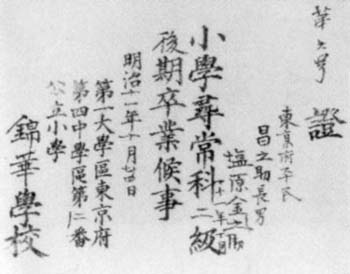 第六号
證
東京府平民
昌之助長男
塩原金之助
十一年十月
小學尋常科二級
後期卒業候事
明治十一年十月廿四日
第一大學區東京府
第四中學區第二番
公立小學
錦華學校